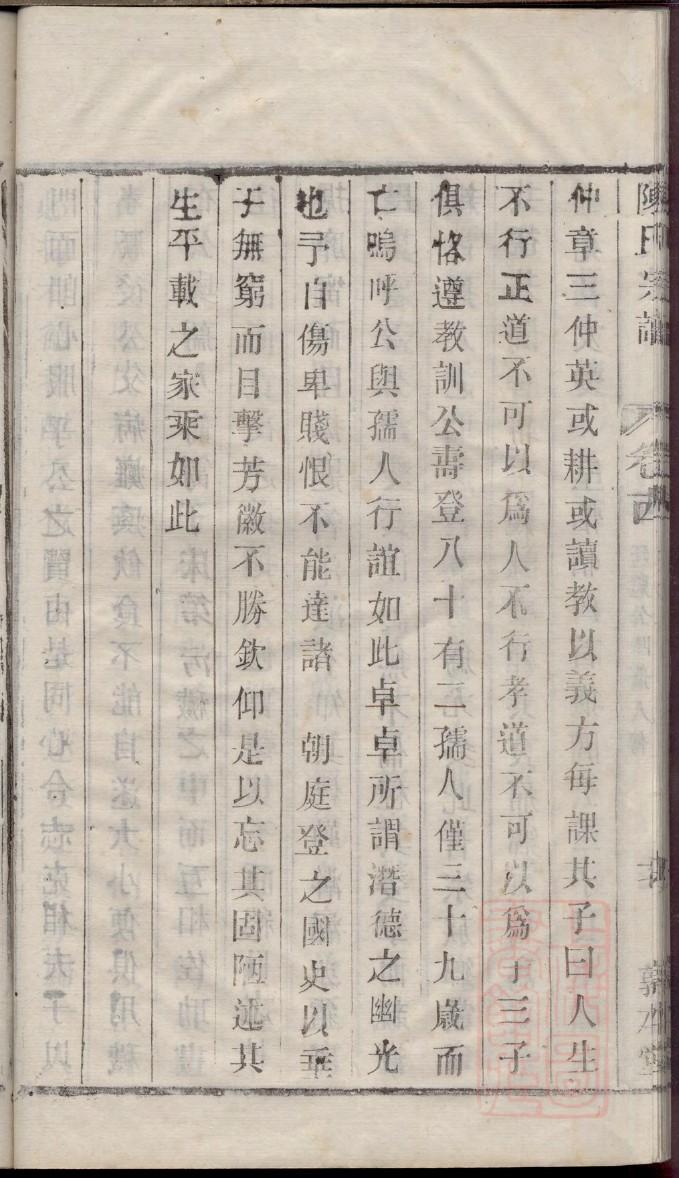 陳氏宗譜 卷 敦本堂
仲章三仲英或耕或讀教以義方每課其子曰人生
不行正道不可以爲人不行孝道不可以爲子三子
俱恪遵教訓公壽登八十有二孺人僅三十九歲而
亡嗚呼公與孺人行誼如此卓卓所謂潛德之幽光
也予自傷卑賤恨不能達諸 朝庭登之國史以垂
于無窮而目擊芳徽不勝欽仰是以忘其固陋述其
生平載之家乘如此